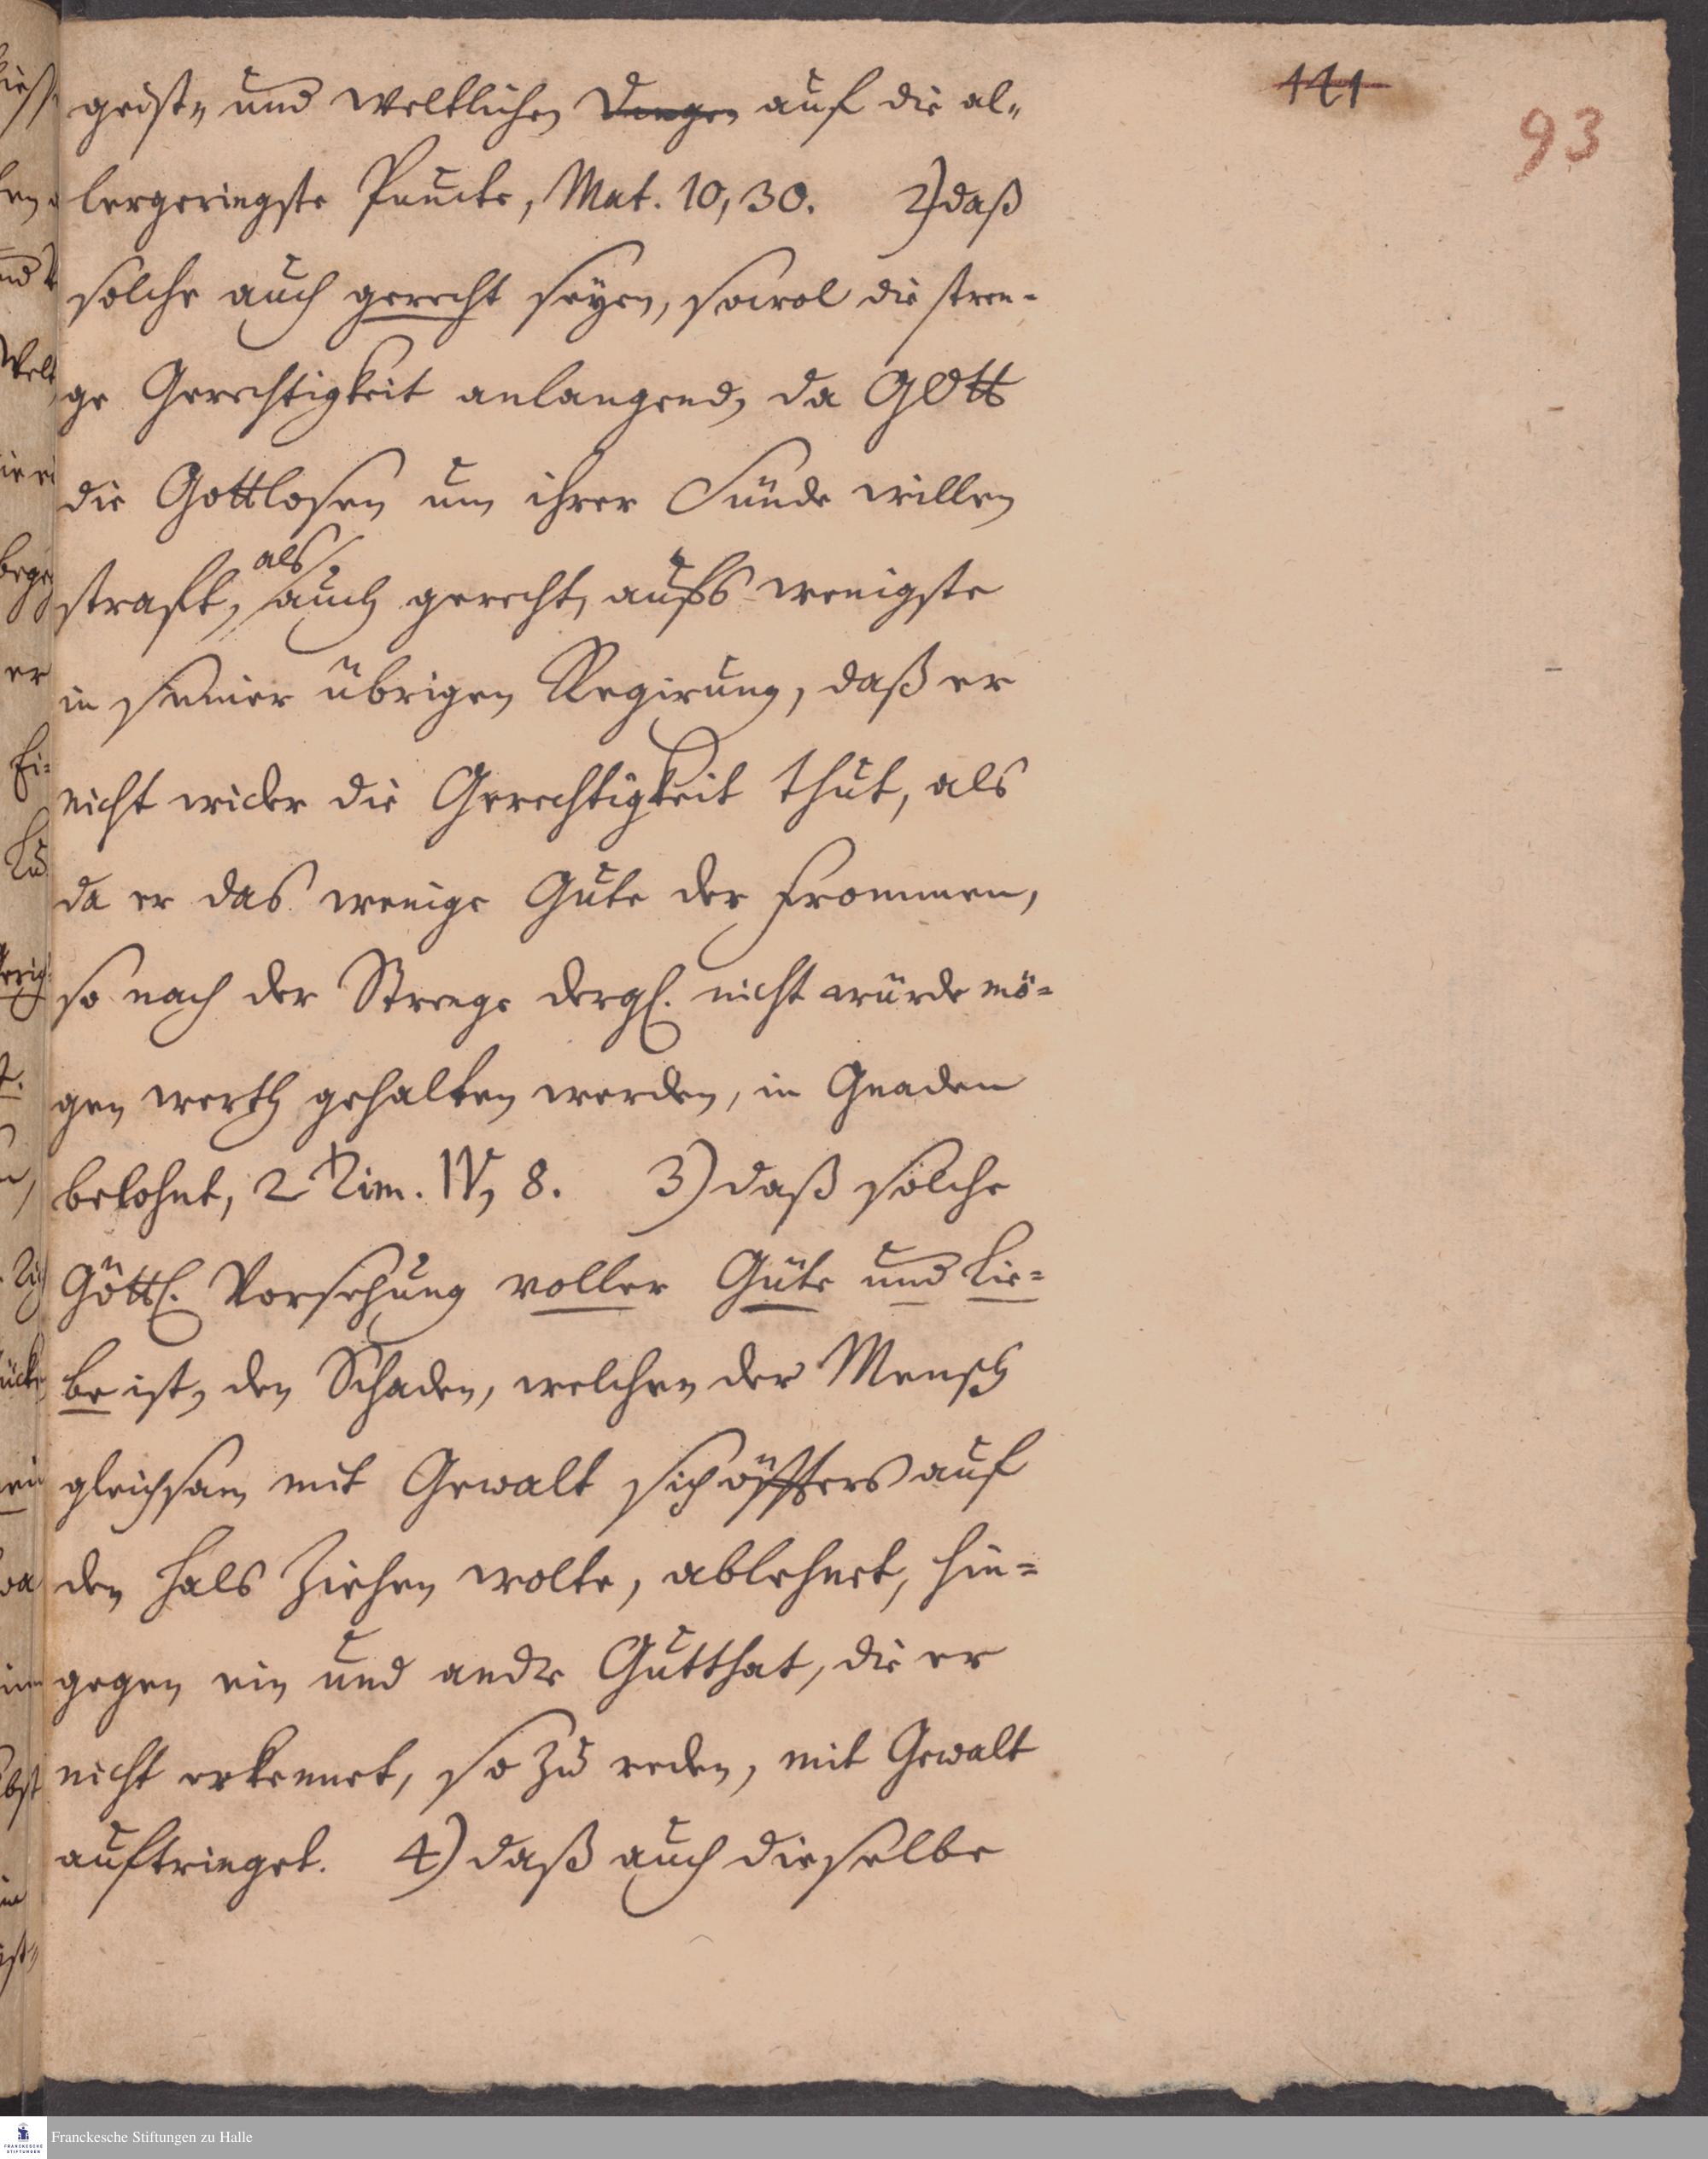 141
93
geist- und weltlichen Dingen auf die al-
lergeringste Puncte, Mat. 10, 30. 2) daß
solche auch gerecht seyen, sowol die stren-
ge Gerechtigkeit anlangend, da GOtt
die Gottlosen um ihrer Sünde willen
straft, als auch gerecht, aufs wenigste
in seiner übrigen Regirung, daß er
nicht wider die Gerechtigkeit thut, als
da er das wenige Gute der Frommen,
so nach der Strenge dergl. nicht würde mö-
gen werth gehalten werden, in Gnaden
belohnt, 2 Tim. IV, 8. 3) daß solche
Göttl. Vorsehung voller Güte und Lie-
be ist, den Schaden, welchen der Mensch
gleichsam mit Gewalt sich öffters auf
den Hals ziehen wolte, ablehnet, hin-
gegen ein und andre Gutthat, die er
nicht erkennet, so zu reden, mit Gewalt
auftringet. 4) daß auch dieselbe
Franckesche Stiftungen zu Halle
FRANCKESCHE
STIFTUNGEN